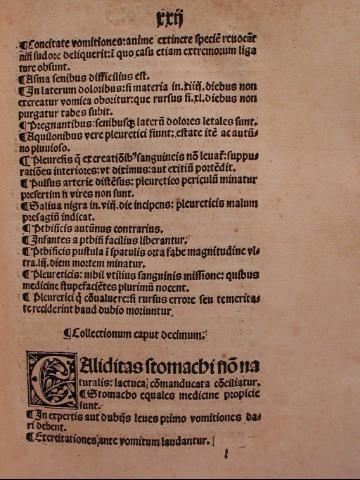 xxij
¶Concitate vomitiones: anime extincte speciẽ reuocãt
nisi sudore deliquerit: ĩ quo casu etiam extremorum liga
ture obsunt.
¶Asma senibus difficilius est.
¶In laterum doloribus: si materia in .xiiij. diebus non
excreatur vomica oboritur: que rursus si .xl. diebus non
purgatur tabes subit.
¶Pregnantibus: senibusq̃ laterũ dolores letales sunt.
¶Aquilonibus vere pleuretici fiunt: estate itẽ ac autũ
no pluuioso.
¶Pleuresis q̃ excreatiõibꝰ sanguineis nõ leuat̃: suppu
ratiões interiores: vt diximus: aut exitiũ portẽdit.
¶Pulsus arterie distẽsus: pleuretico periculũ minatur
presertim si vires non sunt.
¶Saliua nigra in .viij. die incipens: pleureticis malum
presagiũ indicat.
¶Ptbisicis autũnus contrarius.
¶Infantes a ptbisi facilius liberantur.
¶Ptbisicis pustula ĩ spatulis oꝛta fabe magnitudine vl-
tra .lij. diem moꝛtem minatur.
¶Pleureticis: nibil vtilius sanguinis missione: quibus
medicine stupefaciẽtes plurimũ nocent.
¶Pleuretici q̃ cõualuere: si rursus erroꝛe seu temerita-
te reciderint baud dubio moꝛiuntur.
¶Collectionum caput decimum.
CAliditas stomachi nõ na
turalis: lactuca cõmanducata cõciliatur.
¶Stomacho equales medicine propicie
sunt.
¶In expertis aut dubijs leues primo vomitiones da-
ri debent.
¶Exercitationes ante vomitum laudantur.